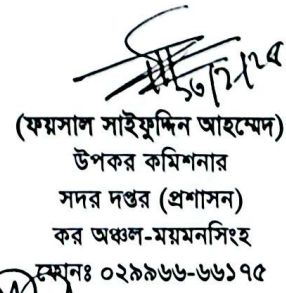 (ফয়সাল সাইফুদ্দিন আহম্মেদ)
উপকর কমিশনার
সদর দপ্তর (প্রশাসন)
কর অঞ্চল-ময়মনসিংহ
ফোনঃ ০২৯৯৬৬-৬৬১৭৫